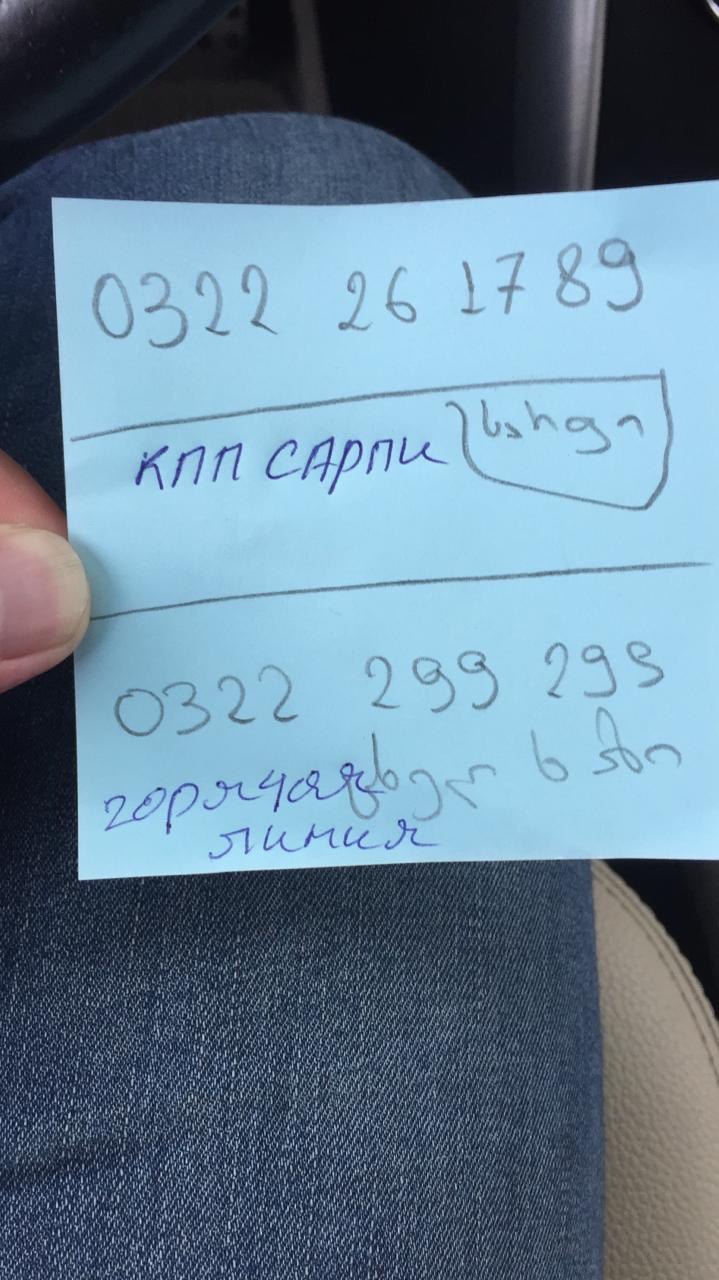 0322 26 1789
КПП САРПИ სარფი
0322 299 299
ცხელი ხაზი
горячая
линия